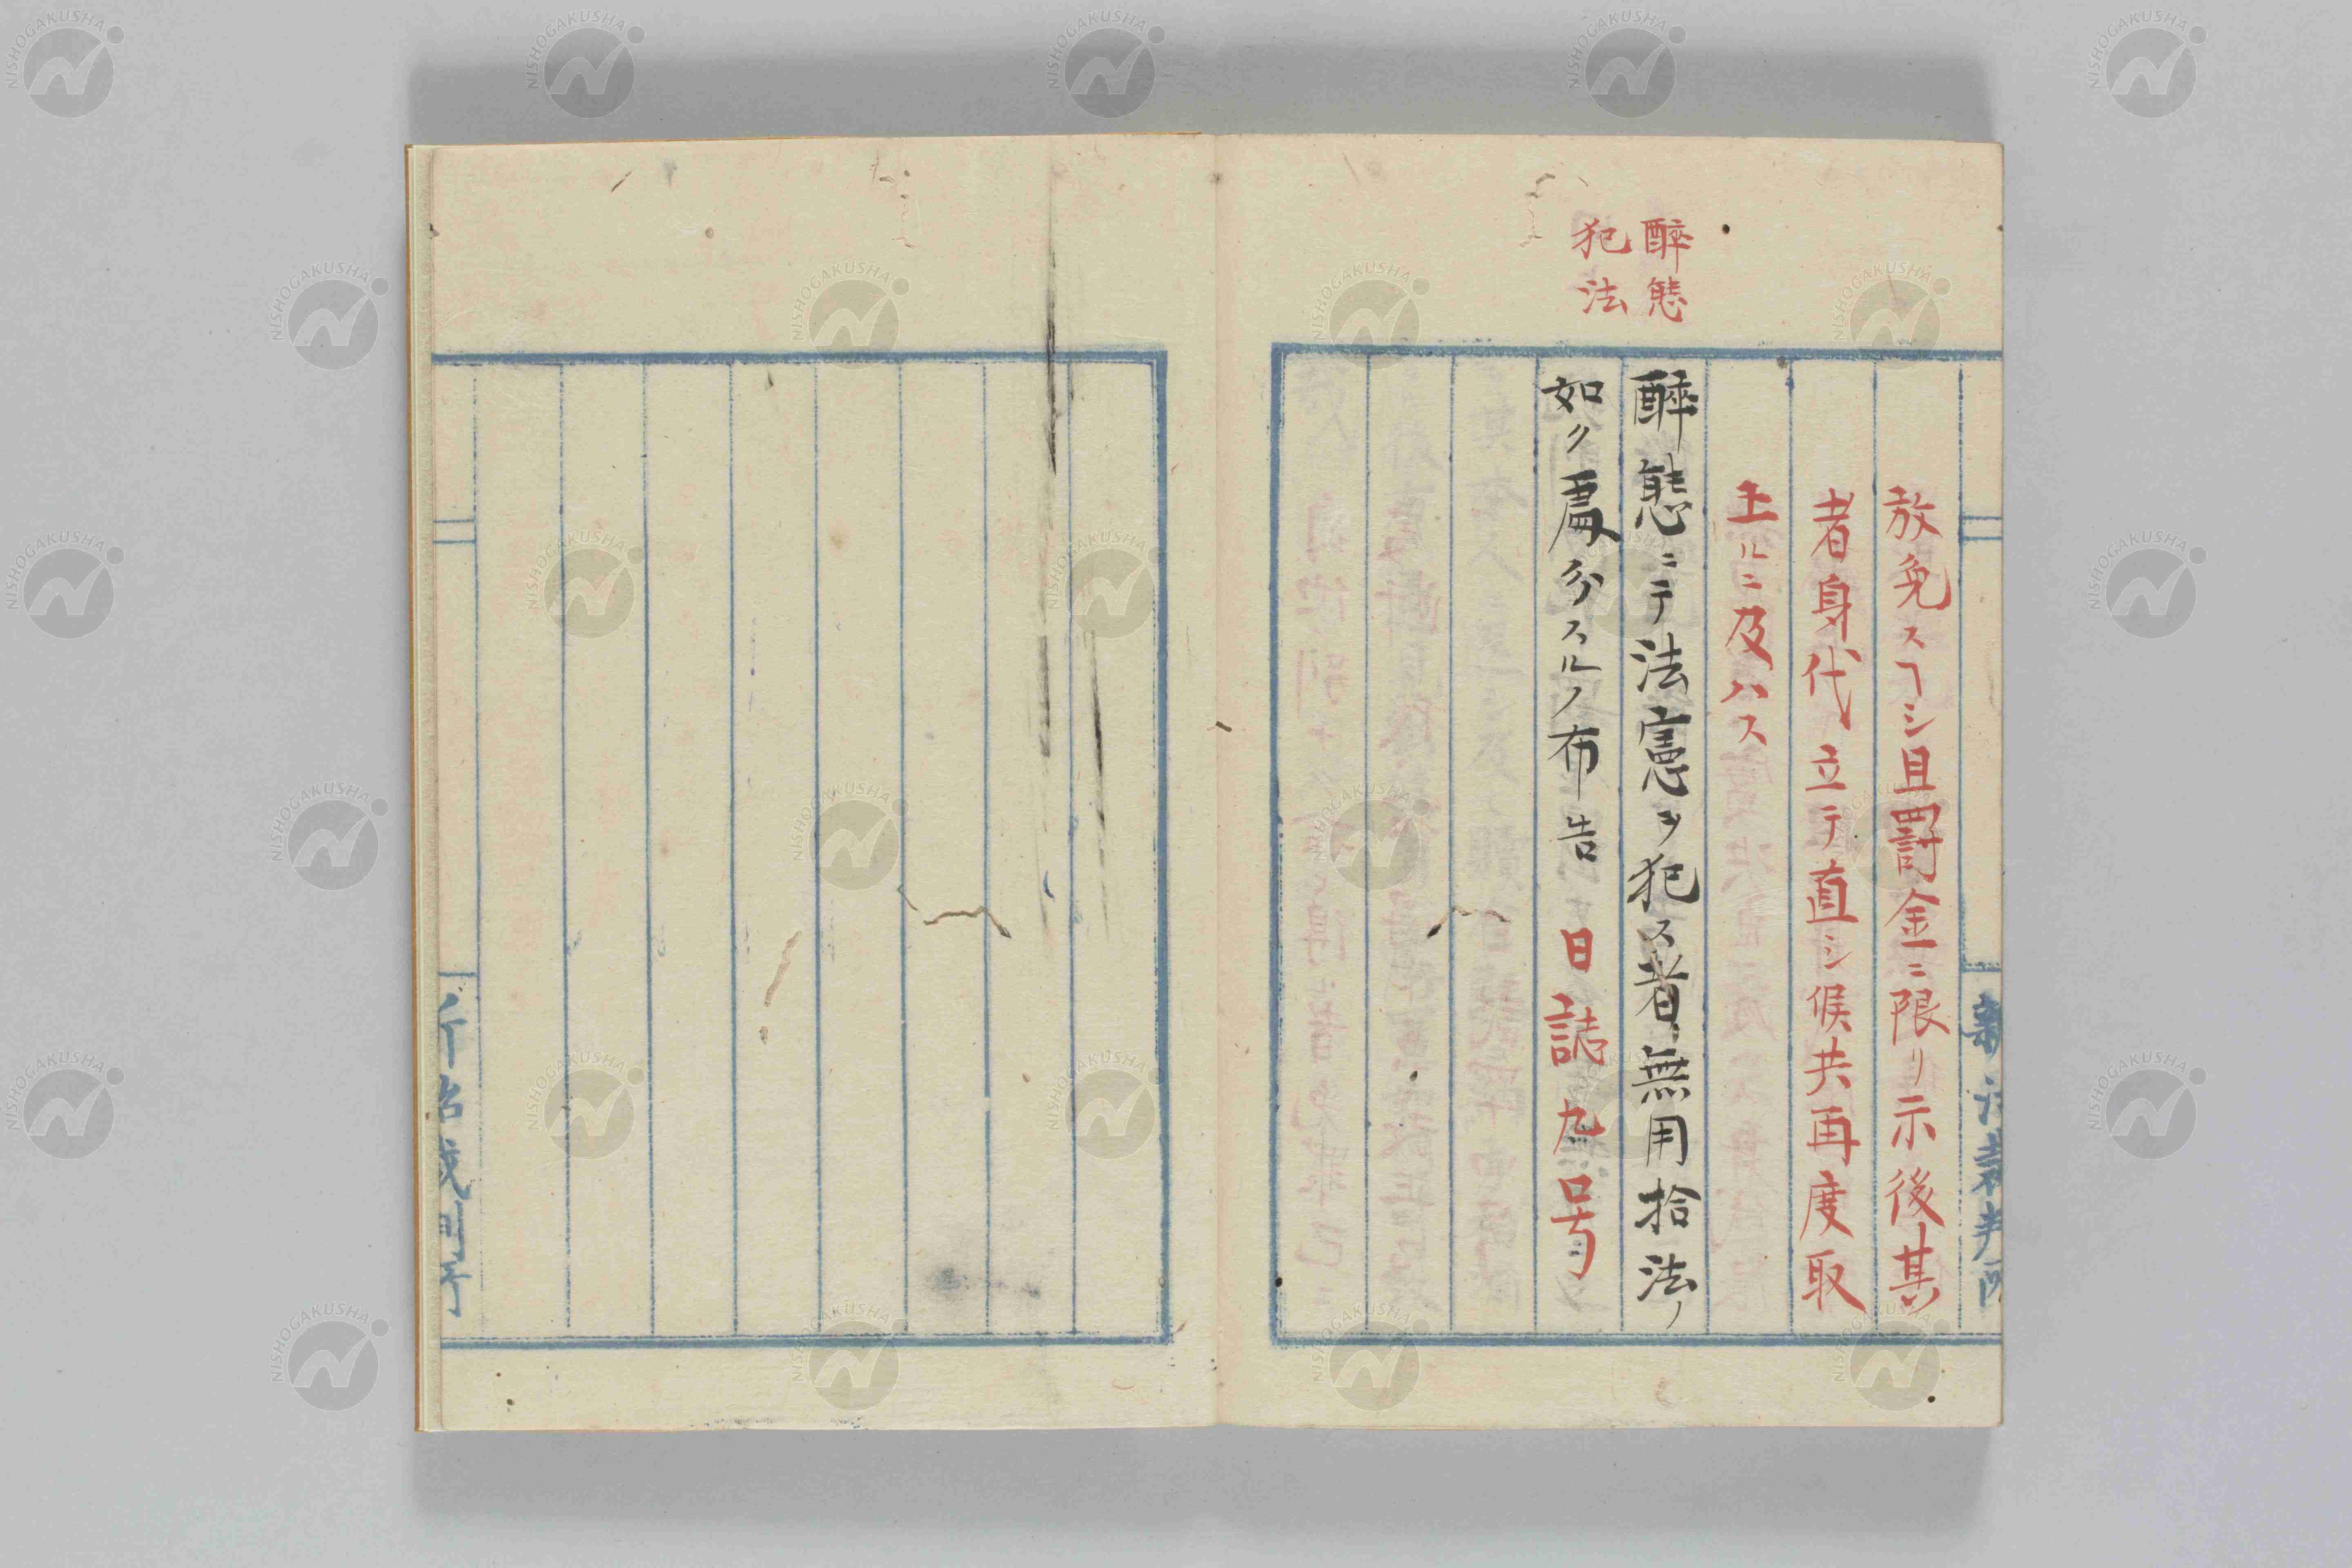 新治裁判所
放免スヘシ且罰金ニ限リ示後其
者身代立テ直シ候共再度取
上ルニ及ハス
醉態
犯法
醉態ニテ法憲ヲ犯ス者無用拾法ノ
如ク處分スルノ布告 日誌九号
新治裁判所
NISHOGAKUSHA